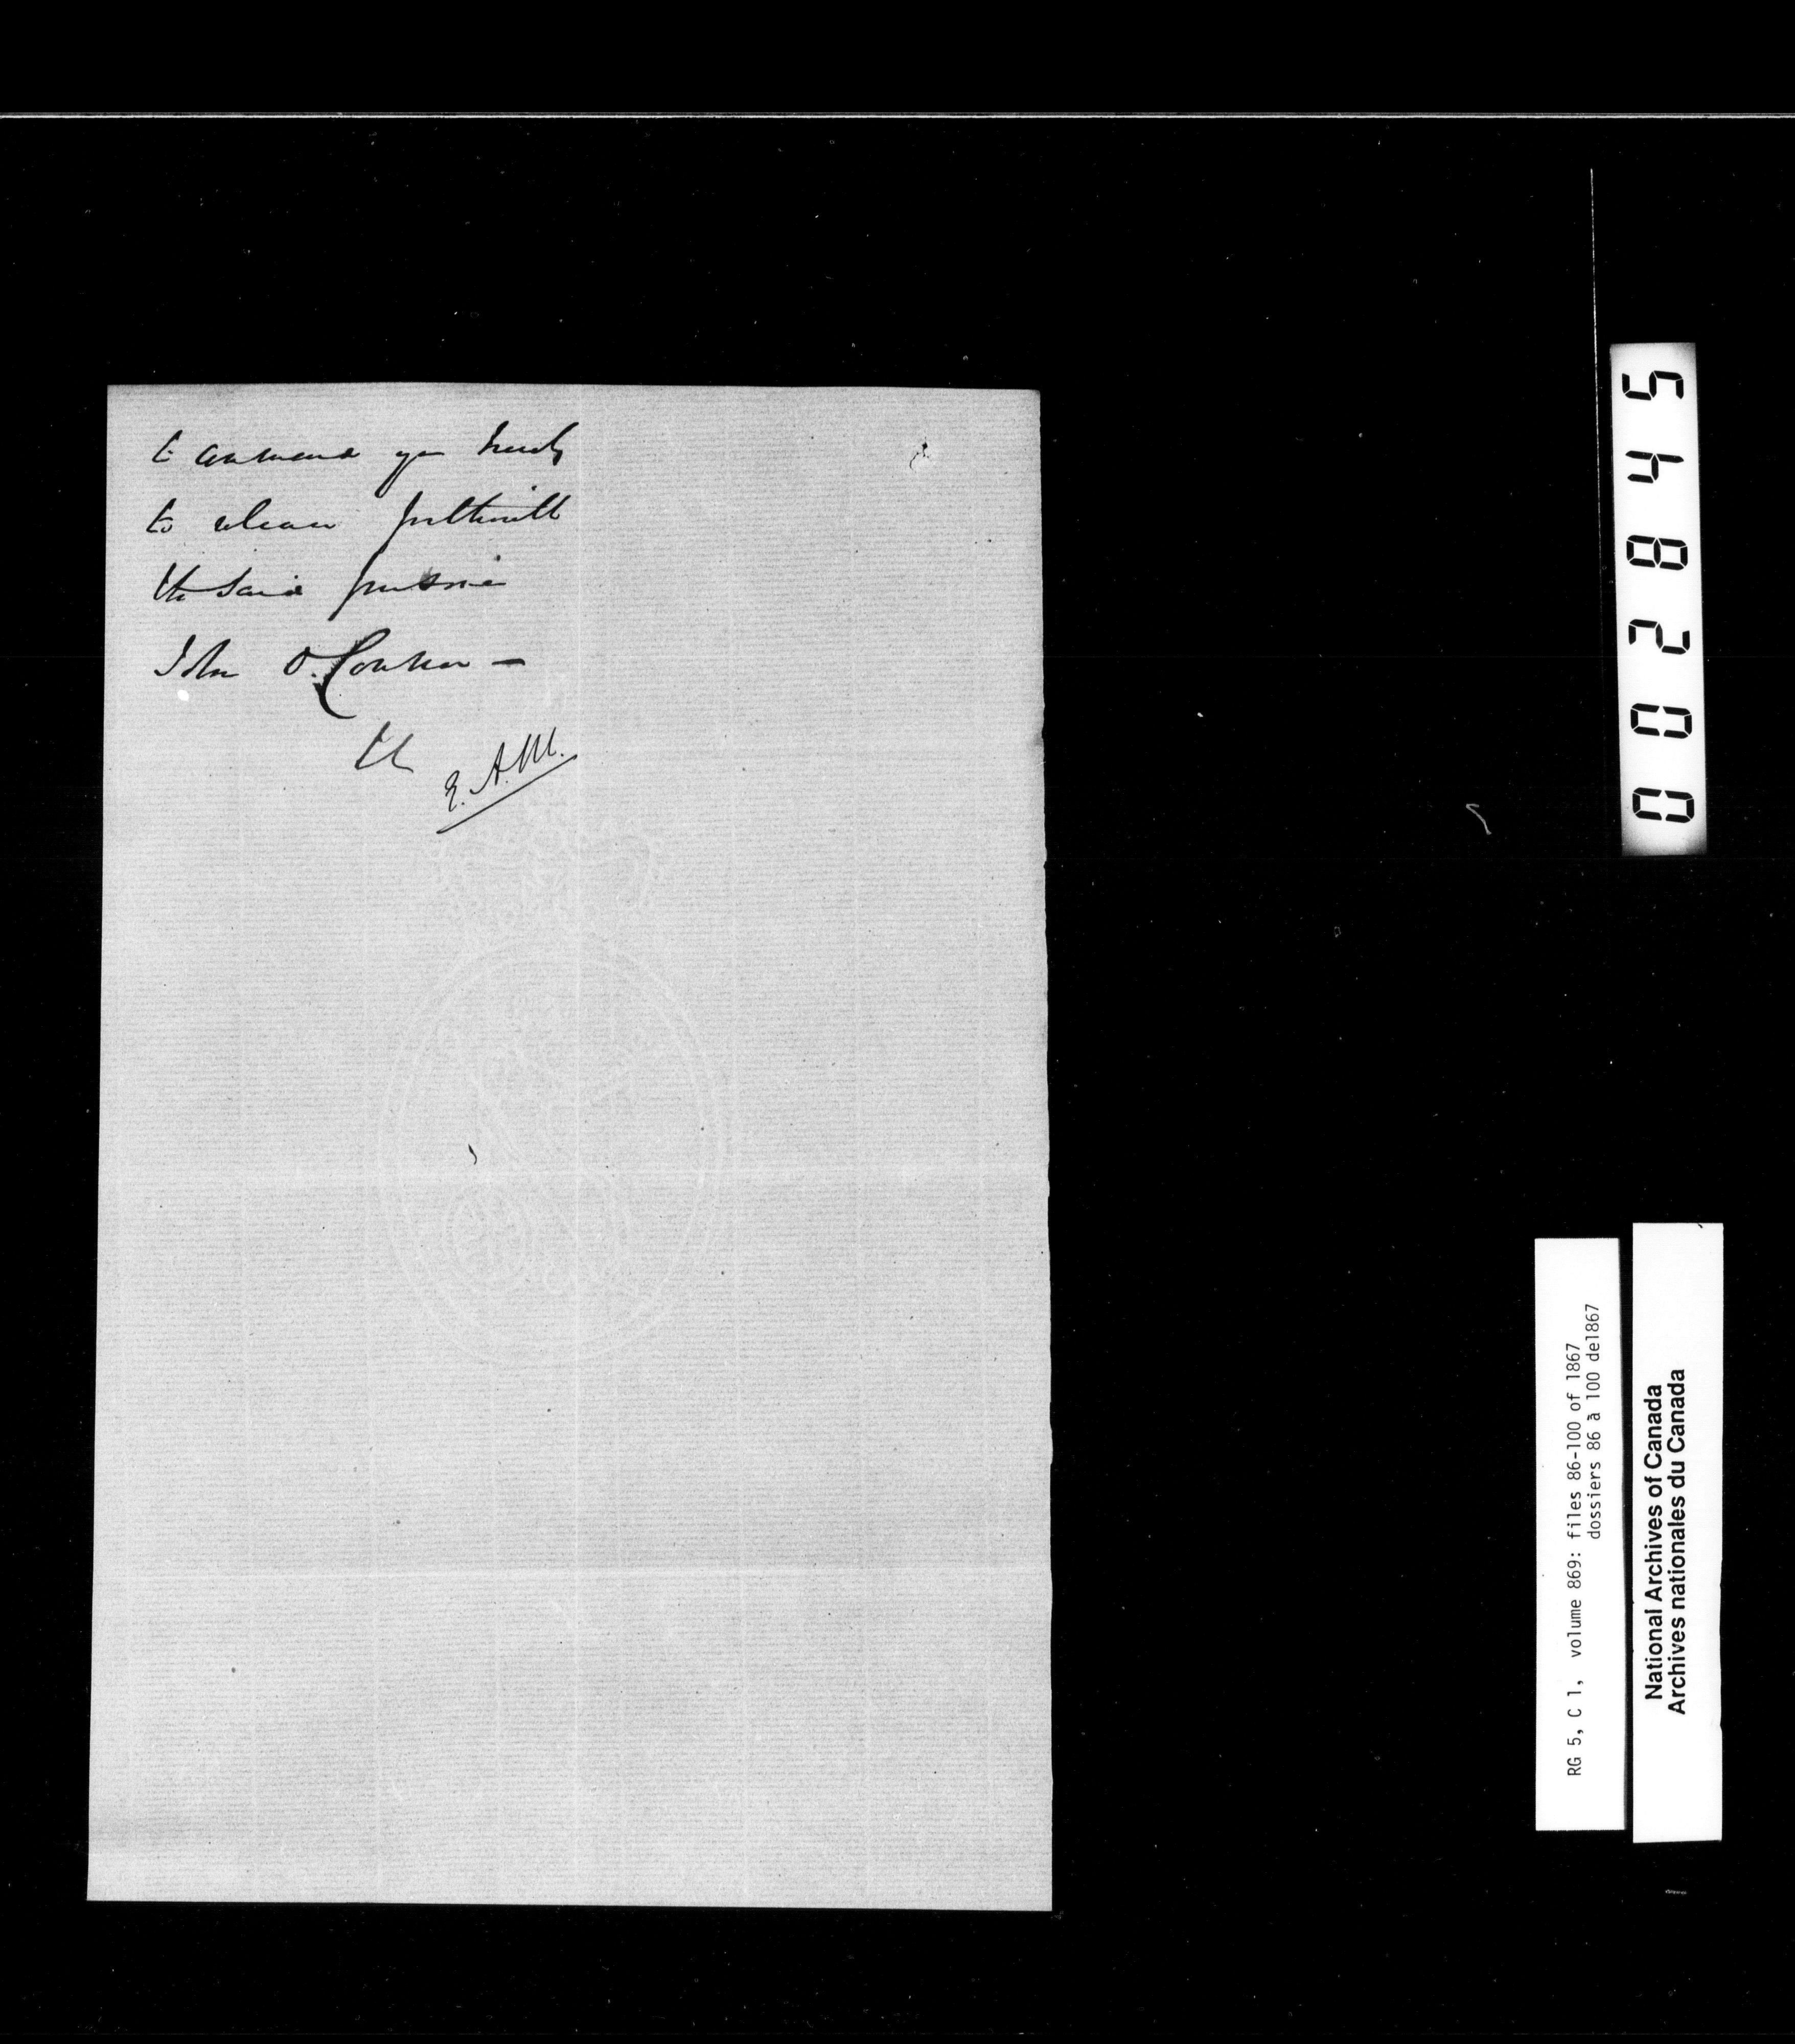 to command you hereby
to release forthwith
the said prisoner
John O. Connor —
E. A. M.
002845
RG 5, C 1, volume 869: files 86-100 of 1867
dossiers 86 à 100 de1867
National Archives of Canada
Archives nationales du Canada